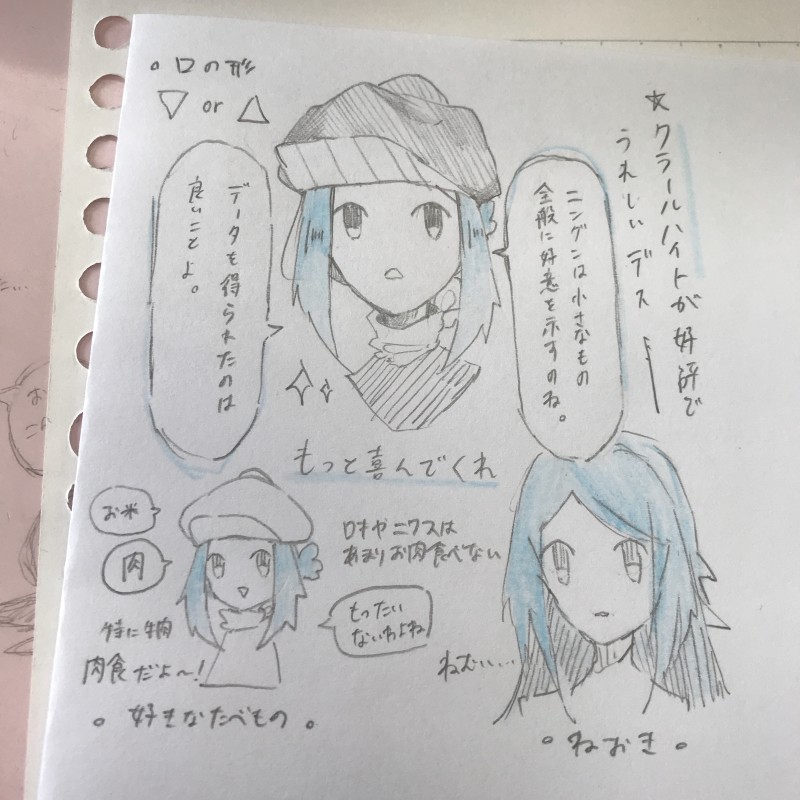 。口の形
▽ or △
★クラールハイトが好評で
うれしいデスー
ニンゲンは小さなもの
全般に好意を示すのね。
データも得られたのは
良いことよ。
もっと喜んでくれ
お米
肉
特に牛肉
肉食だよ〜!
ロオやニクスは
あまりお肉食べない
もったい
ないわよね
。好きなたべもの。
ねむい...
。ねおき。